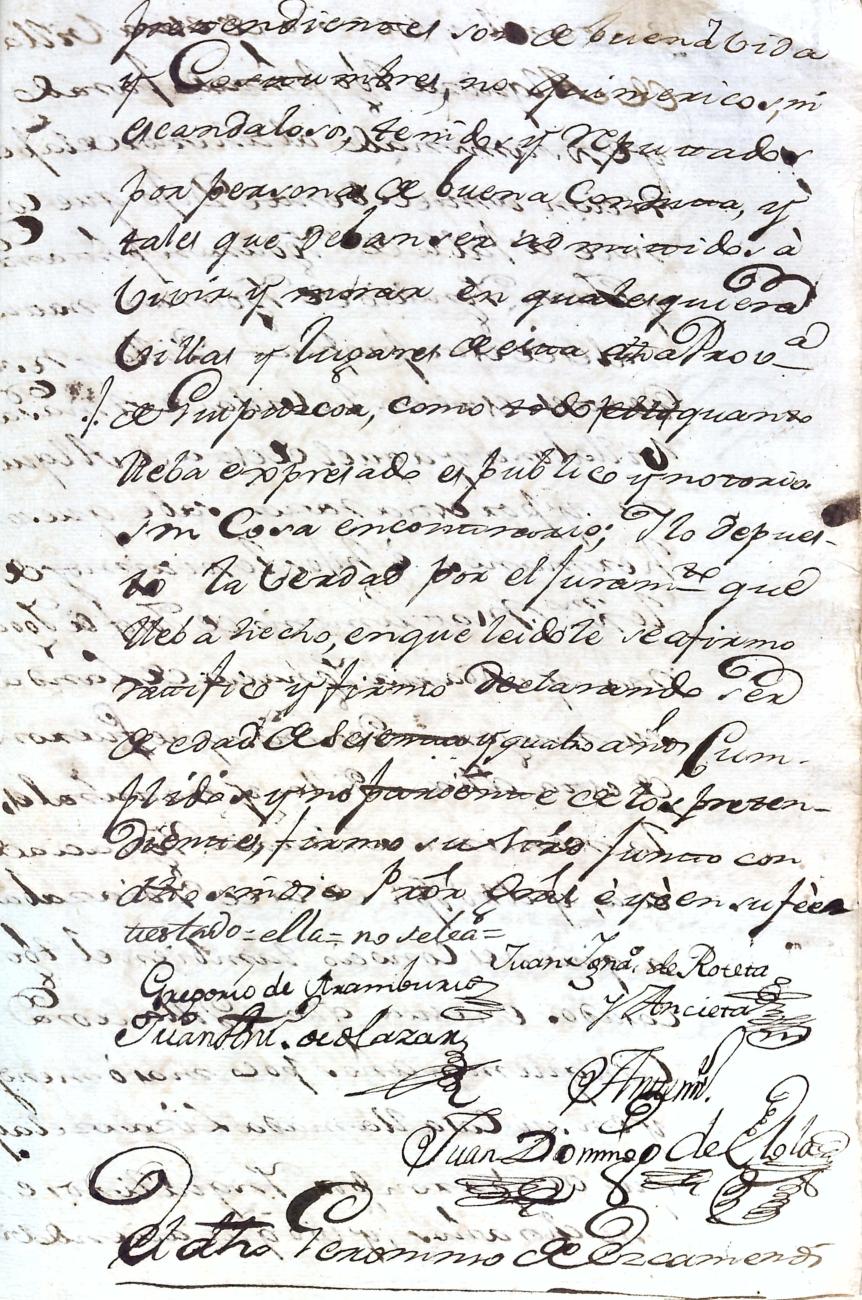 pretendientes son de buena vida
y Costumbres, no quimericos, ni
escandalosos, tenidos y Reputtados
por personas de buena Conductta, y
tales que deban ser admittidos à
vivir y morar en qualesquiera
Villas y lugares de esta dha Prov.ª
de Guipuzcoa, como todo quanto
lleba expresado es publico y notorio
sin Cosa encontrario; Y lo depues-
to la verdad por el Juram.to que
lleba hecho, en que leidole se afirmo
rattifico y firmo declarando Ser
de edad de Sesenta y quatro años Cum-
plidos y no pariente de los preten-
dienttes, firmo su mrd Juntto con
dho sindico Pror Gral è yò en fee=
testado=ella= no se lea=
Juan Ign.º de Roteta
Gregorio de Aramburu
y Ancieta
Juan Ant.º de Olazar
Antemi.
Juan Domingo de
El dho Geronimo de Ezcamendi